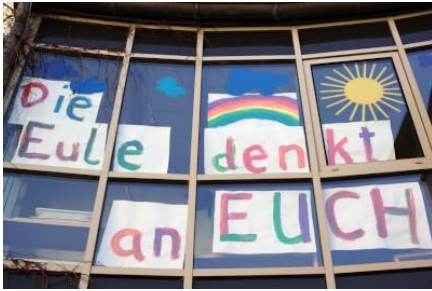 Die
Eule denkt
an EUCH